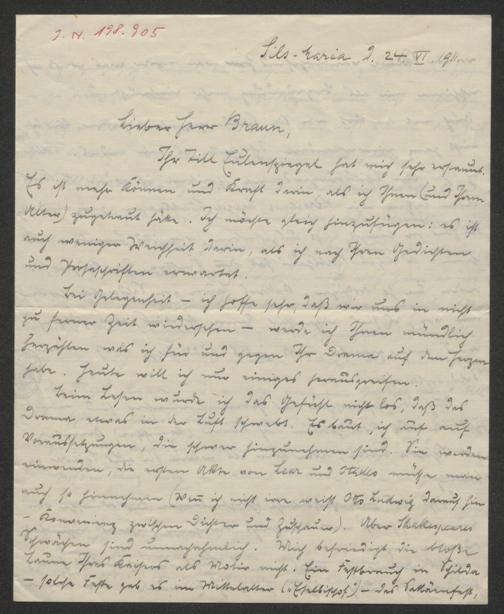 J. N. 198.905
Sils-Maria d. 24. VI. 19
Lieber Herr Braun,
Ihr Till Eulenspiegel hat mich sehr erstaunt.
Es ist mehr Können und Kraft darin als ich Ihnen (und Ihrem
Alter) zugetraut hätte. Ich möchte gleich hinzufügen: es ist
auch weniger Weichheit darin, als ich nach Ihren Gedichten
und Prosaschriften erwartet.
Bei Gelegenheit – ich hoffe sehr, daß wir uns in nicht
zu ferner Zeit wiedersehen – werde ich Ihnen mündlich
was ich für und gegen Ihr Drama auf dem Herzen
habe. Heute will ich nur einiges herausgreifen.
Beim Lesen wurde ich das Gefühl nicht los, daß das
Drama etwas in der Luft schwebt. Es baut sich auf auf
Voraussetzungen, die schwer hinzunehmen sind. Sie werden
einwenden, die ersten Akte von Lear und Othello müßte man
auch so hinnehmen (wenn ich nicht irre weist Otto Ludwig darauf hin
– Konvenienz zwischen Dichter und Zuschauer). Aber Shakespeares
Schwächen sind unnachahmlich. Mich befriedigt die bloße
Laune Ihres Kaisers als Motiv nicht. Ein Festbrauch in Schilda
– solche Feste gab es im Mittelalter („Eselbischof“) – das Sakäenfest,